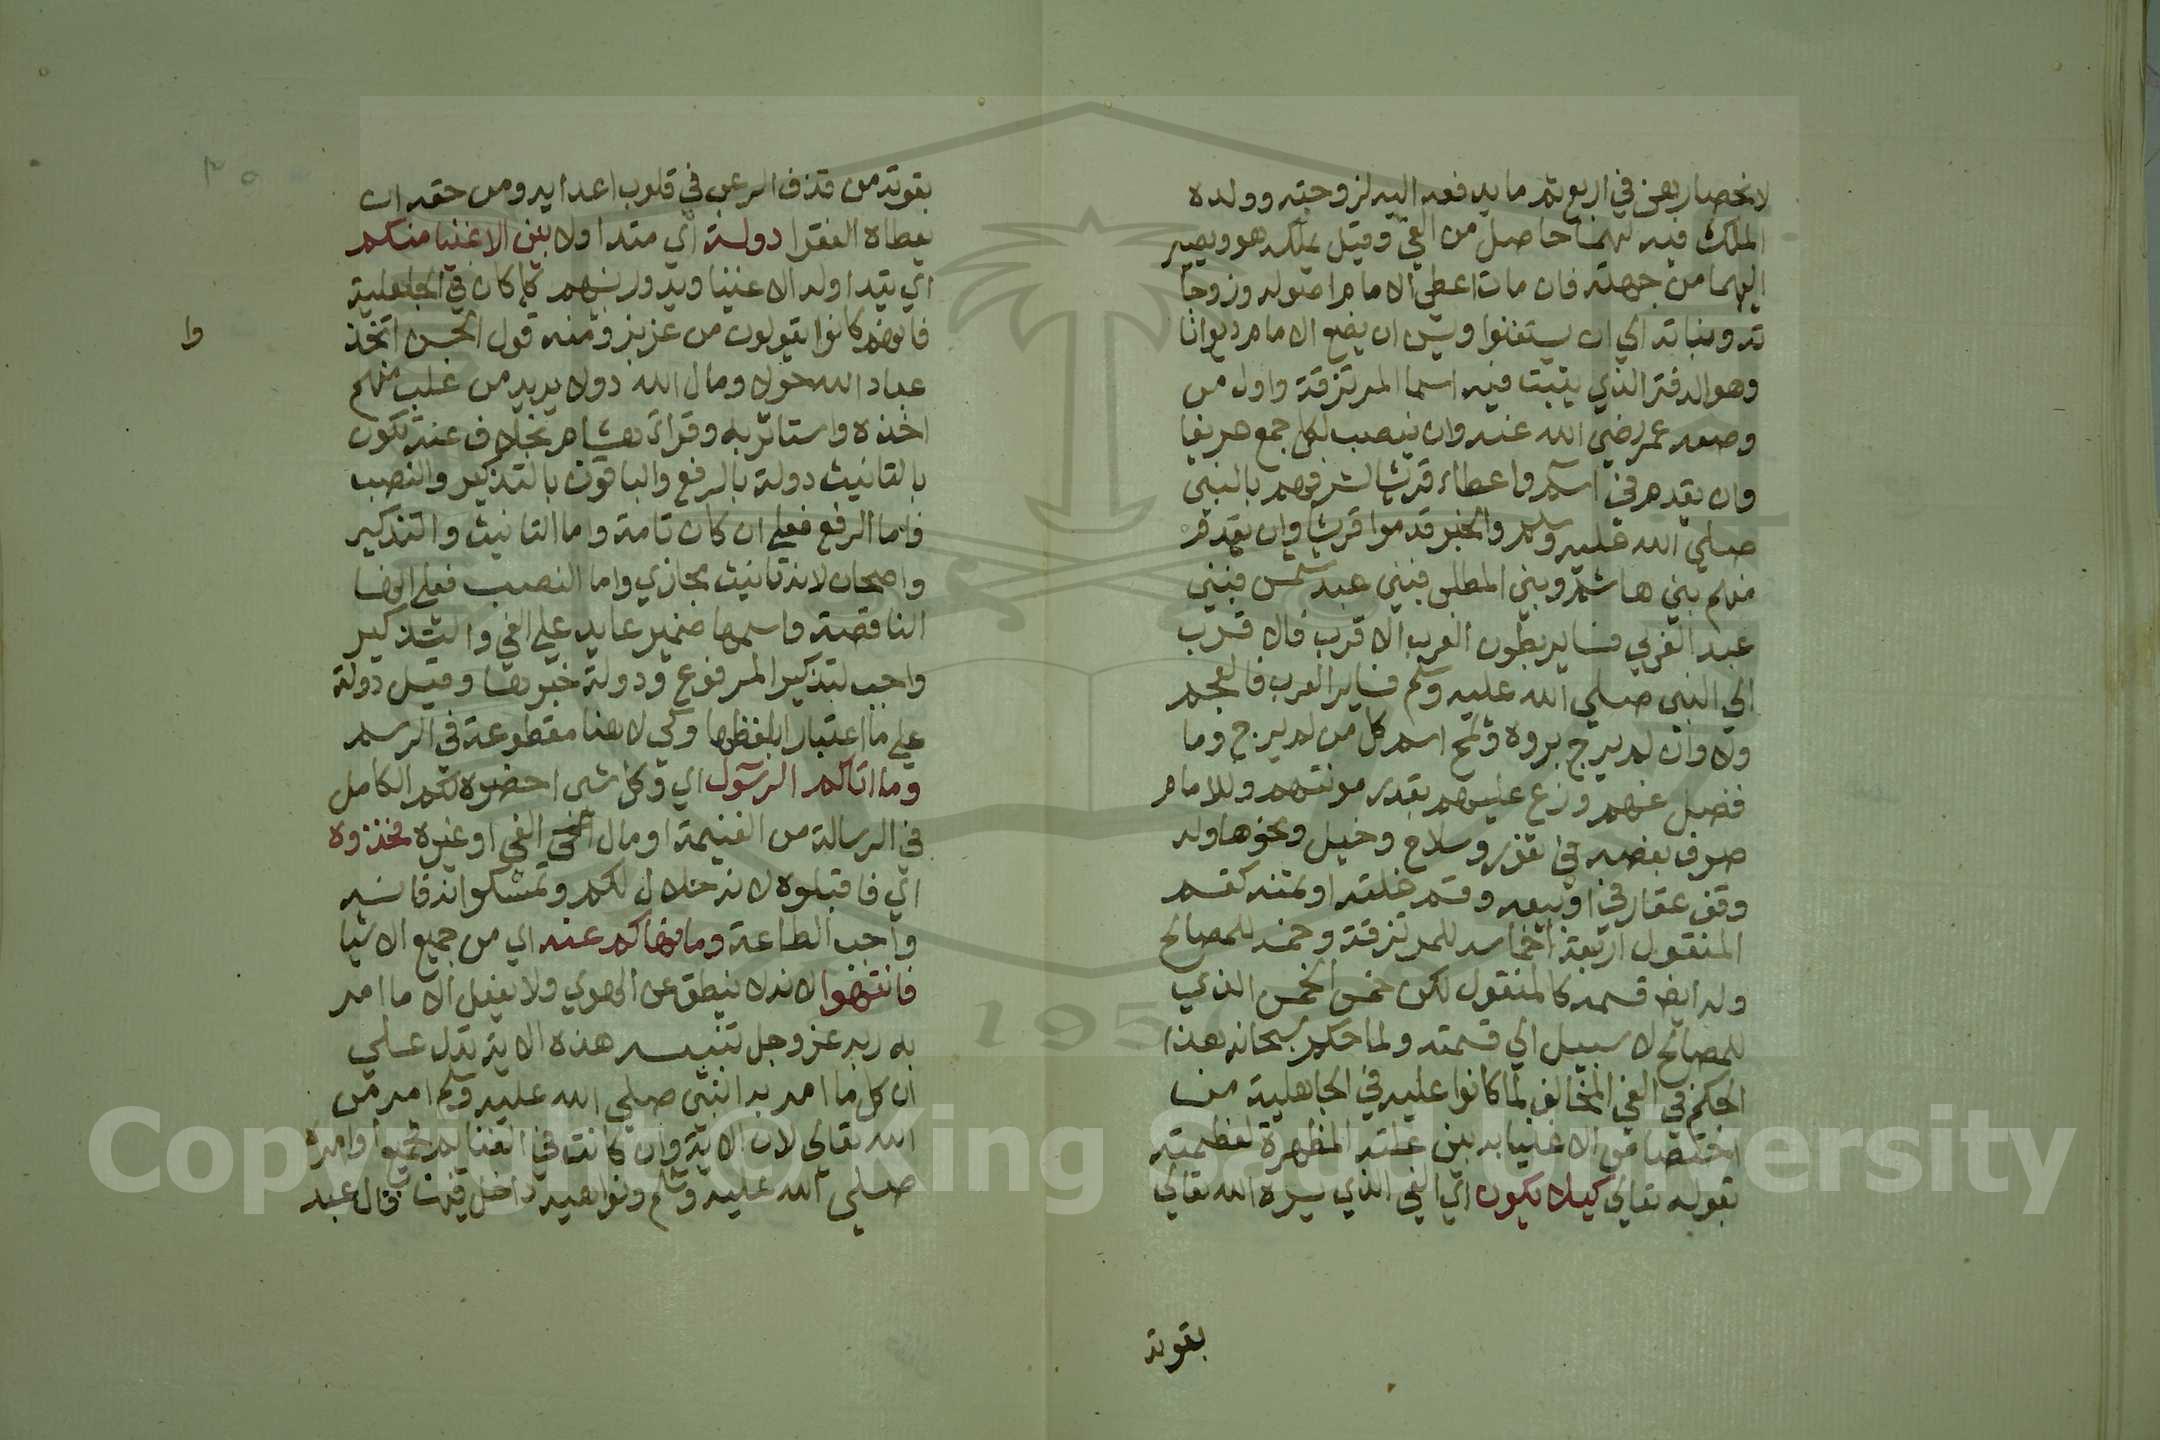 لانحصارهن في اربع ثم ما يدفعه اليه لزوجته وولده
الملك فيه لهما حاصل من الفي وقيل يملكه هو ويصير
اليهما من جهته فان مات اعطي الامام اصوله وزوجا
ته وبناته الي ان يستغنوا ويسن ان يضع الامام ديوانا
وهو الدفتر الذي يثبت فيه اسما المرتزقة واول من
وضعه عمر رضي الله عنه وان ينصب لكل جمع عريفا
وان يقدم في اسم واعطاء قريشا لشرفهم بالنبي
صلي الله عليه وسلم والخبر قدموا قريشا وان يقدم
منهم بني هاشم وبني المطلب فبني عبد شمس فبني
عبد العزي فساير بطون العرب الاقرب فالاقرب
الي النبي صلي الله عليه وسلم فساير العرب فالعجم
ولا وان لم يرج بروه ومحي اسم كل من لم يرج وما
فضل عنهم وزع عليهم بقدر مونتهم وللامام
صرف بعضه في ثغور وسلاح وخيل ونحوها وله
وقف عقار في او بيعه وقسم غلته او ثمنه كقسم
المنقول اربعة اخماسه للمرتزقة وخمسه للمصالح
وله ايضا قسمه كالمنقول لكن خمس الخمس الذي
للمصالح لا سبيل الي قسمته ولما حكم سبحانه هذا
الحكم في الفي المخالف لما كانوا عليه في الجاهلية من
اختصاص الاغنيا به بين علته المظهرة لعظمته
بقوله تعالي كيلا يكون اي الفي الذي يسره الله تعالي
بقوته
بقوته من قذف الرعب في قلوب اعدايه ومن حقه ان
يعطاه الفقرا دولة اي متداولا بين الاغنيا منكم
اي يتداوله الاغنيا ويدور بينهم كما كان في الجاهلية
فانهم كانوا يقولون من عز بز ومنه قول الحسن اتخذ
وا
عباد الله خولا ومال الله دولا يريد من غلب منهم
اخذه واستاثر به وقرا هشام بخلاف عنه تكون
بالتانيث دولة بالرفع والباقون بالتذكير والنصب
فاما الرفع فعلي ان كان تامة واما التانيث والتذكير
واضحان لانه تانيث مجازي واما النصب فعلي انها
الناقصة واسمها ضمير عايد علي الفي والتذكير
واجب لتذكير المرفوع ودولة خبرها وقيل دولة
علي ما اعتبارا بلفظها وكي لا هنا مقطوعة في الرسم
وما اتاكم الرسول اي وكل شي احضره لكم الكامل
في الرسالة من الغنيمة او مال الفي او غيره فخذوه
اي فاقبلوه لانه حلال لكم وتمسكوا به فانه
واجب الطاعة وما نهاكم عنه اي من جميع الاشيا
فانتهوا لانه لا ينطق عن الهوي ولا يفعل الا ما امر
به ربه عز وجل تنبيه هذه الاية تدل علي
ان كل ما امر به النبي صلي الله عليه وسلم امر من
الله تعالي لان الاية وان كانت في الغنايم فجميع اوامره
صلي الله عليه وسلم ونواهيه داخل فيها قال عبد